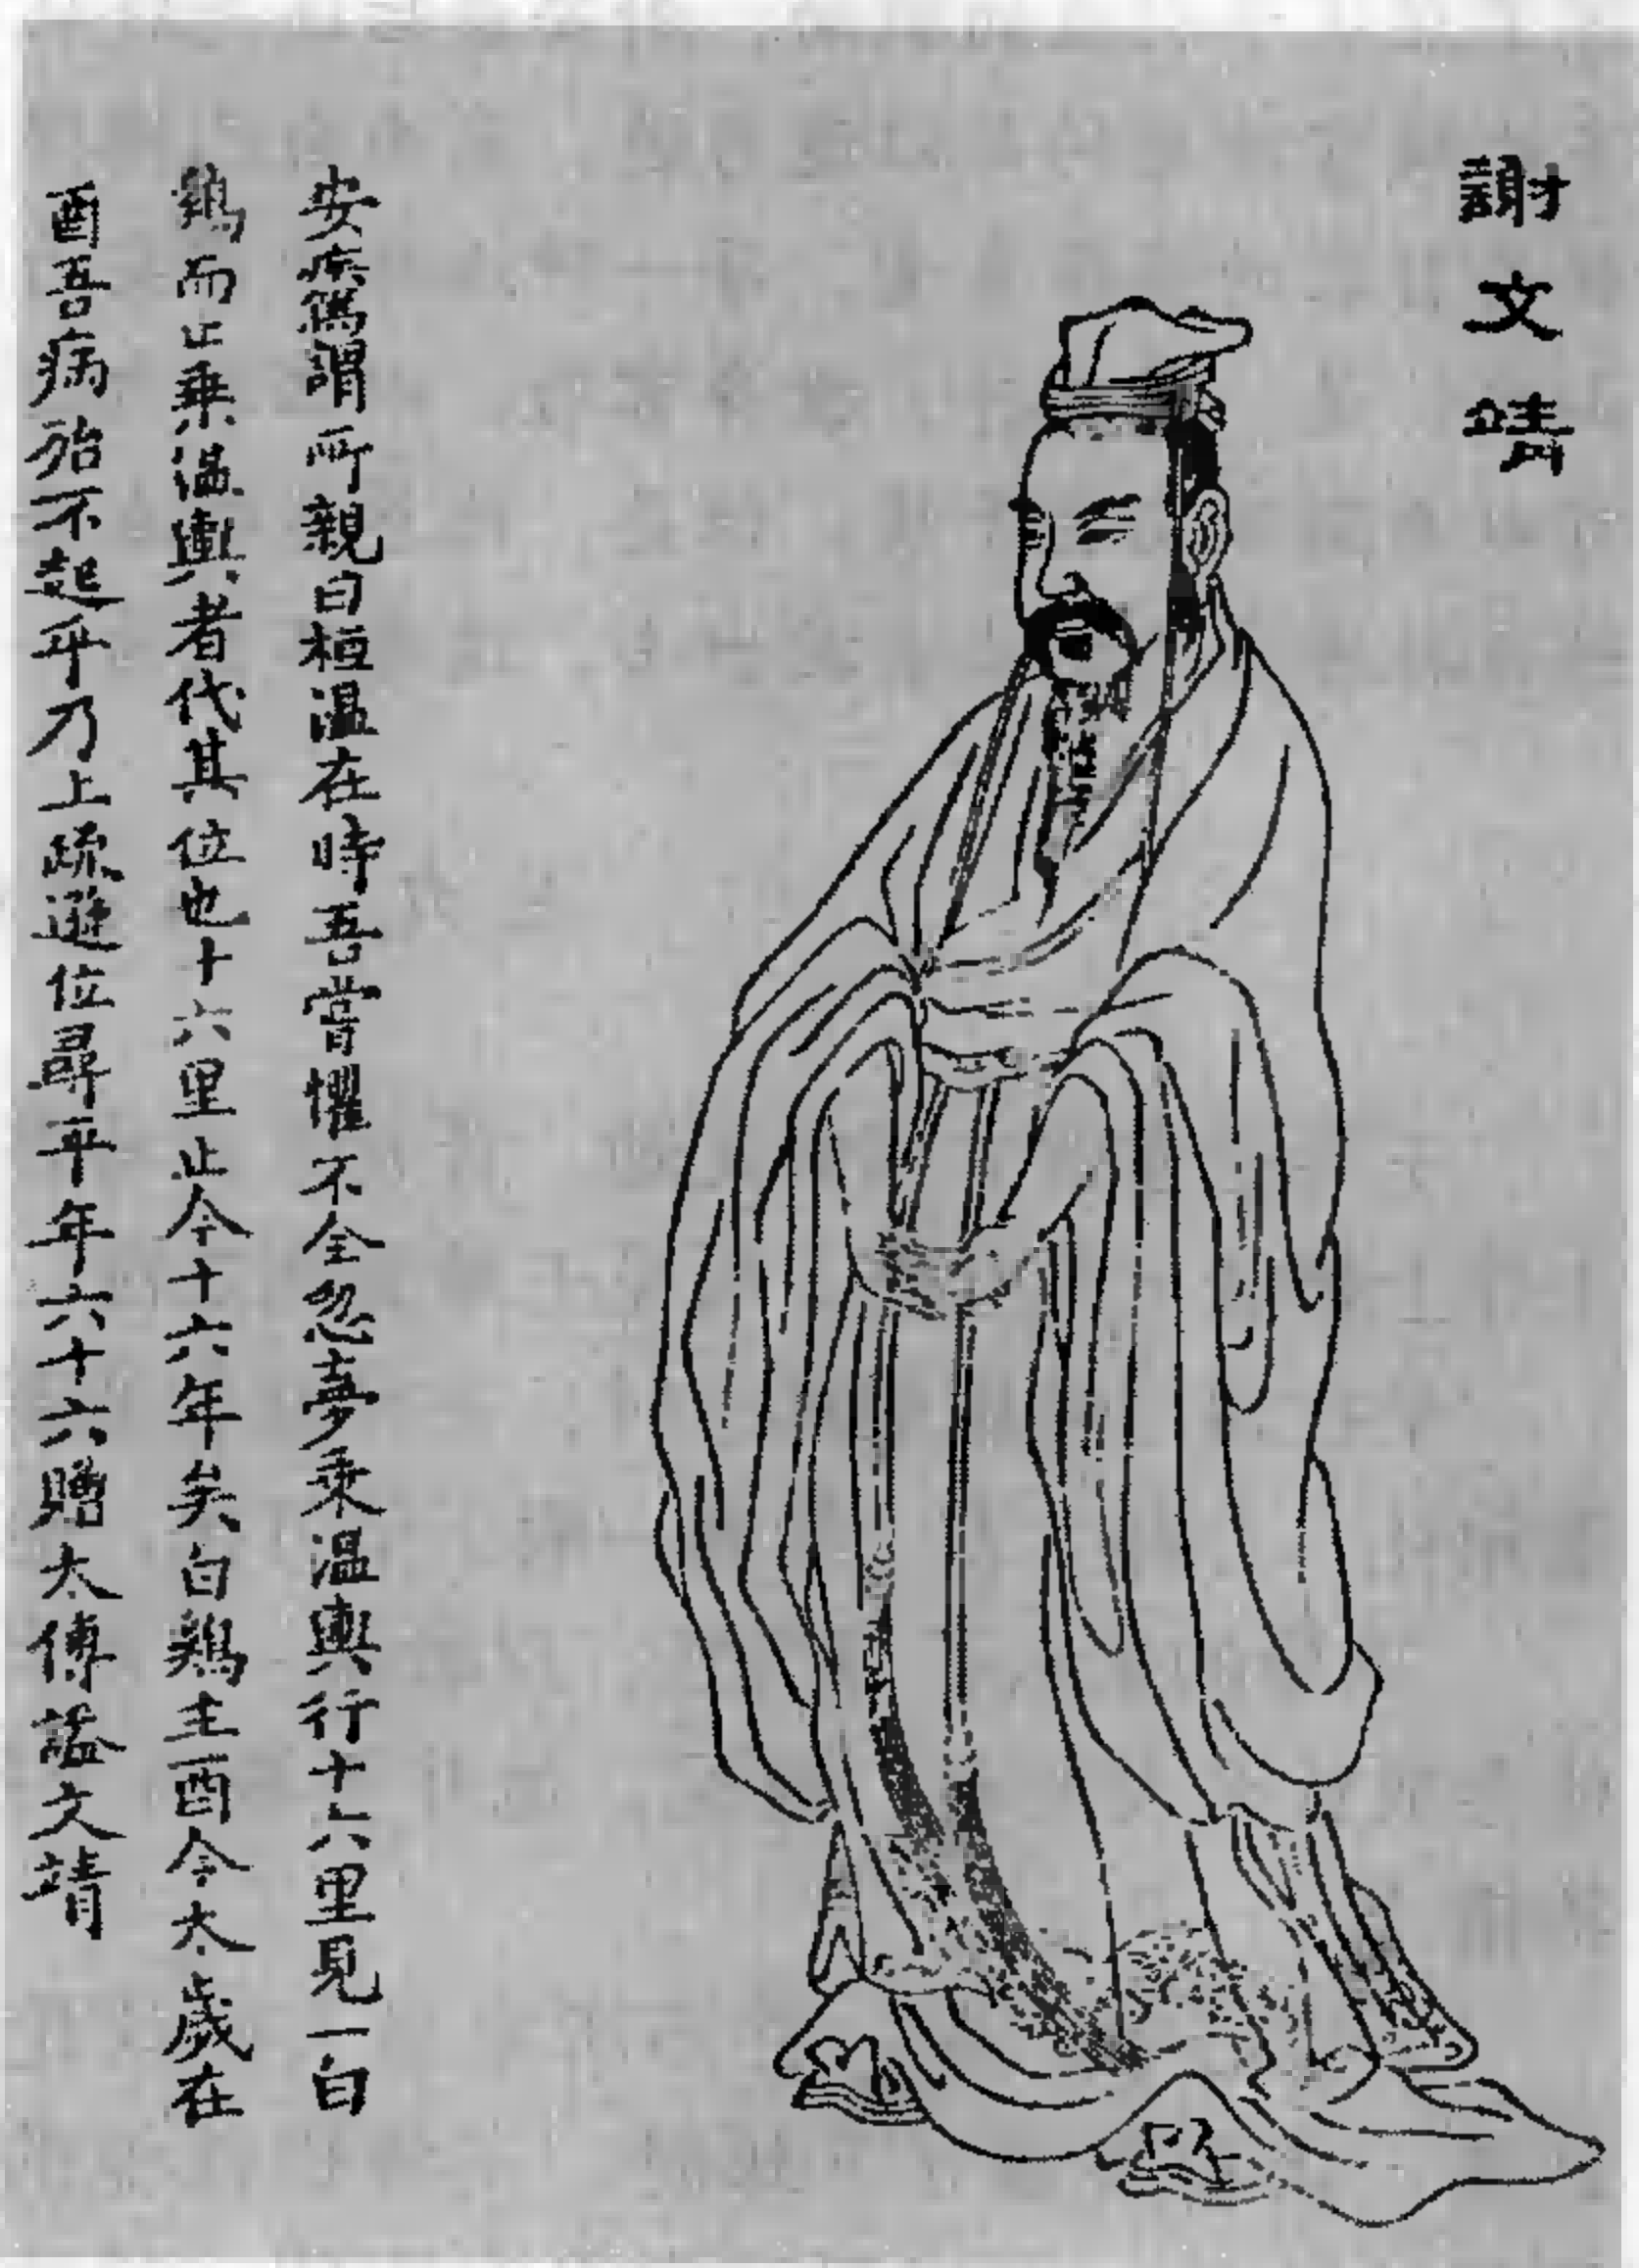 謝文靖
安疾篤謂所親曰桓温在時吾嘗懼不全忽夢乘温輿行十六里見一白
鶏而止乗温輿者代其位也十六里止今十六年矣白鶏主酉今太歲在
酉吾病殆不起乎乃上疏遜位尋卒年六十六贈太傅謚文靖